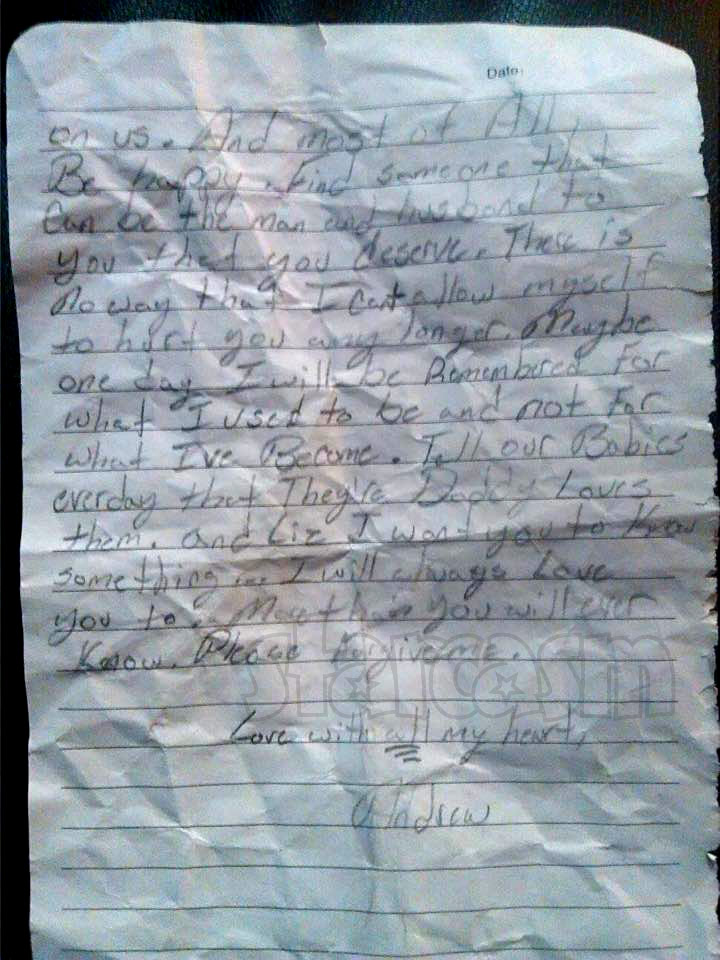 Date:
on us. And most of All,
Be happy. Find someone that
Can be the man and husband to
you that you deserve. There is
no way that I can allow myself
to hurt you any longer. Maybe
one day I will be Remembered For
what I used to be and not For
what I've Become. Tell our Babies
everday that They're Daddy Loves
them. and Liz I want you to Know
something... I will always Love
you to. More than you will ever
Know. Please Forgive me.
starcasm
Love with all my heart,
Andrew